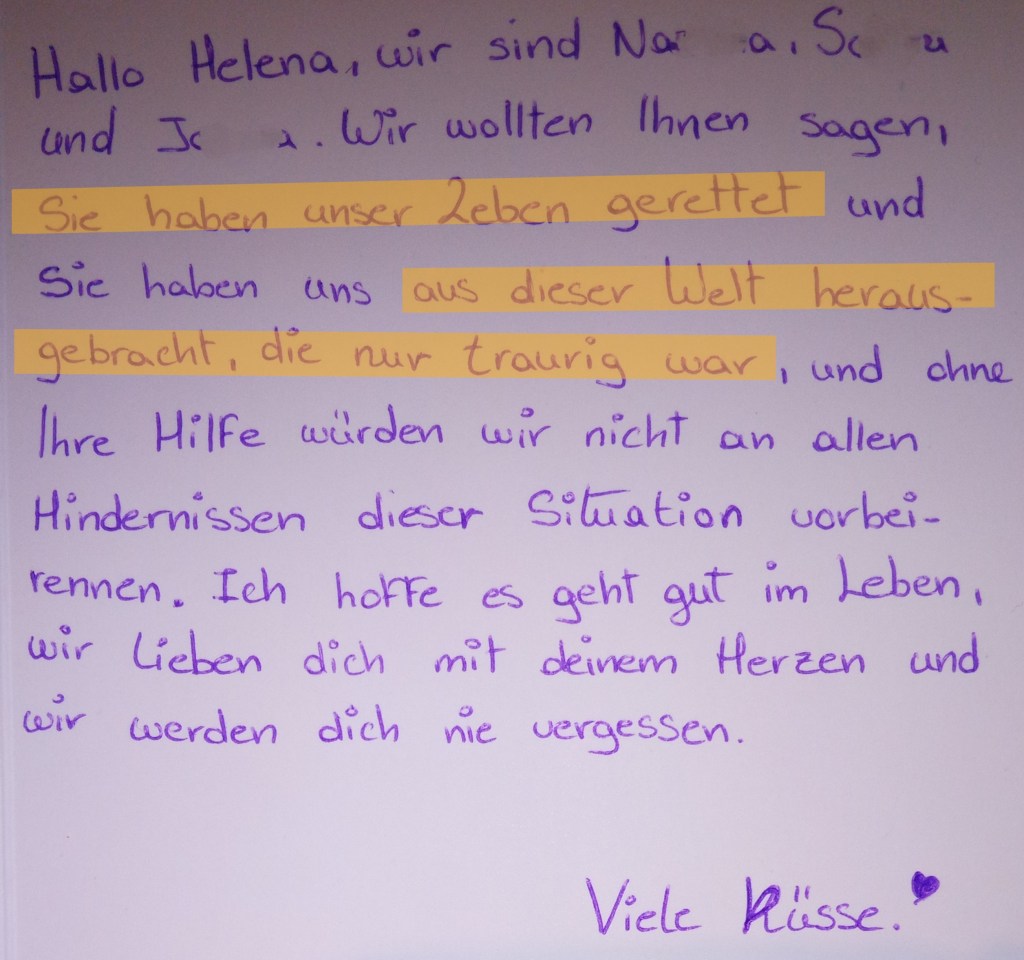 Hallo Helena, wir sind
und. Wir wollten Ihnen sagen,
Sie haben unser Leben gerettet und
Sie haben uns aus dieser Welt heraus-
gebracht, die nur traurig war, und ohne
Ihre Hilfe würden wir nicht an allen
Hindernissen dieser Situation vorbei-
rennen. Ich hoffe es geht gut im Leben,
wir lieben dich mit deinem Herzen und
wir werden dich nie vergessen.
Viele Küsse.